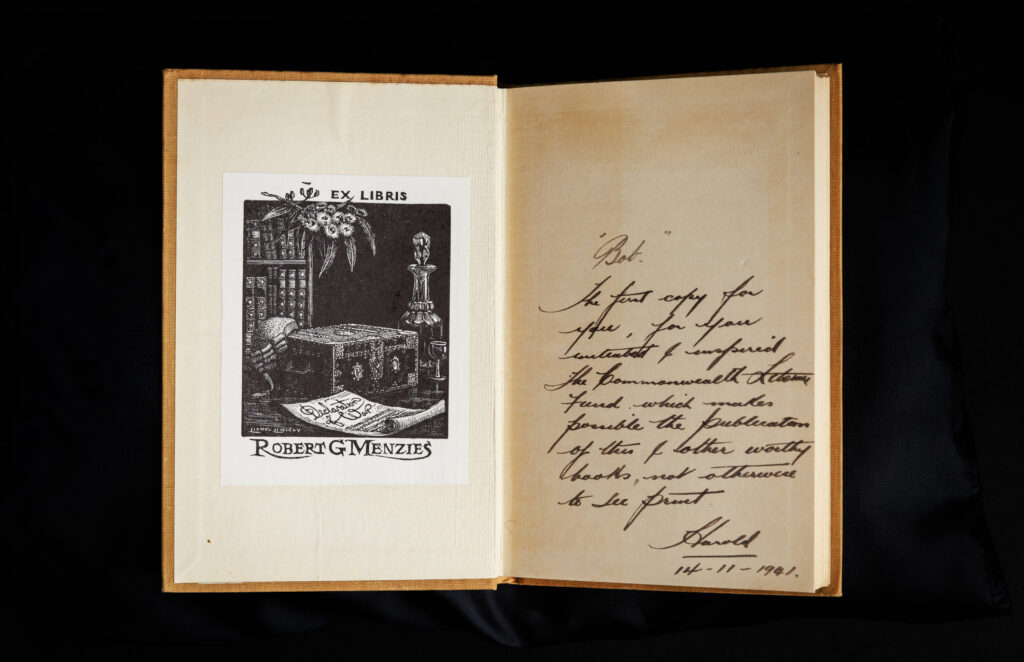 EX LIBRIS
Declaration
of War
LIONEL LINDSAY
ROBERT G MENZIES
"Bob."
The first copy for
you, for you
initiated & inspired
The Commonwealth Literary
Fund which makes
possible the publication
of this & other worthy
books, not otherwise
to see print
Harold
14-11-1941.